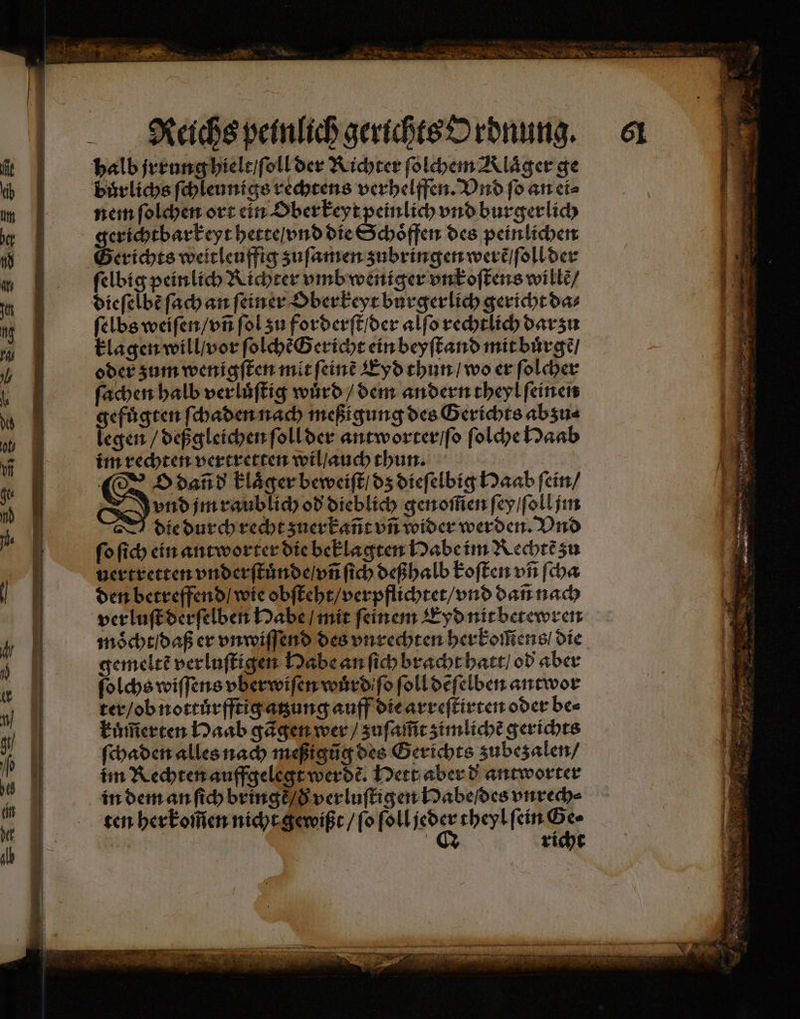 Reichs peinlich gerichts Ordnung. 61
halb jrrung hielt/soll der Richter solchem Klåger ge
bůrlichs schleunigs rechtens verhelffen. Vnd so an ei⸗
nem solchen ort ein Oberkeyt peinlich vnd burgerlich
gerichtbarkeyt hette/vnd die Schőffen des peinlichen
Gerichts weitleuffig zusamen zubringen werẽ/soll der
selbig peinlich Richter vmb weniger vnkostens willẽ/
dieselbẽ sach an seiner Oberkeyt burgerlich gericht da⸗
selbs weisen/vñ sol zu forderst/der also rechtlich darzu
klagen will/vor solchẽ Gericht ein beystand mit bůrgẽ/
oder zum wenigsten mit seinẽ Eyd thun / wo er solcher
sachen halb verlůstig wůrd / dem andern theyl seinen
gefůgten schaden nach meßigung des Gerichts abzu⸗
legen / deßgleichen soll der antworter/so solche Haab
im rechten vertretten wil/auch thun.
SO dañ d̕ klåger beweist/ dz dieselbig Haab sein/
vnd jm raublich od̕ dieblich genom̃en sey/soll jm
die durch recht zuerkañt vñ wider werden. Vnd
so sich ein antworter die beklagten Habe im Rechtẽ zu
uertretten vnderstůnde/vñ sich deßhalb kosten vñ scha
den betreffend/ wie obsteht/verpflichtet/vnd dañ nach
verlust derselben Habe / mit seinem Eyd nit betewren
mőcht/daß er vnwissend des vnrechten herkom̃ens/ die
gemeltẽ verlustigen Habe an sich bracht hatt/ od̕ aber
solchs wissens vberwisen wůrd/so soll dẽselben antwor
ter/ob nottůrfftig atzung auff die arrestirten oder be⸗
kům̃erten Haab gãgen wer / zusam̃t zimlichẽ gerichts
schaden alles nach meßigũg des Gerichts zubezalen/
im Rechten auffgelegt werdẽ. Hett aber d̕ antworter
in dem an sich bringẽ/d̕ verlustigen Habe/des vnrech⸗
ten herkom̃en nicht gewißt / so soll jeder theyl sein Ge⸗
Q richt